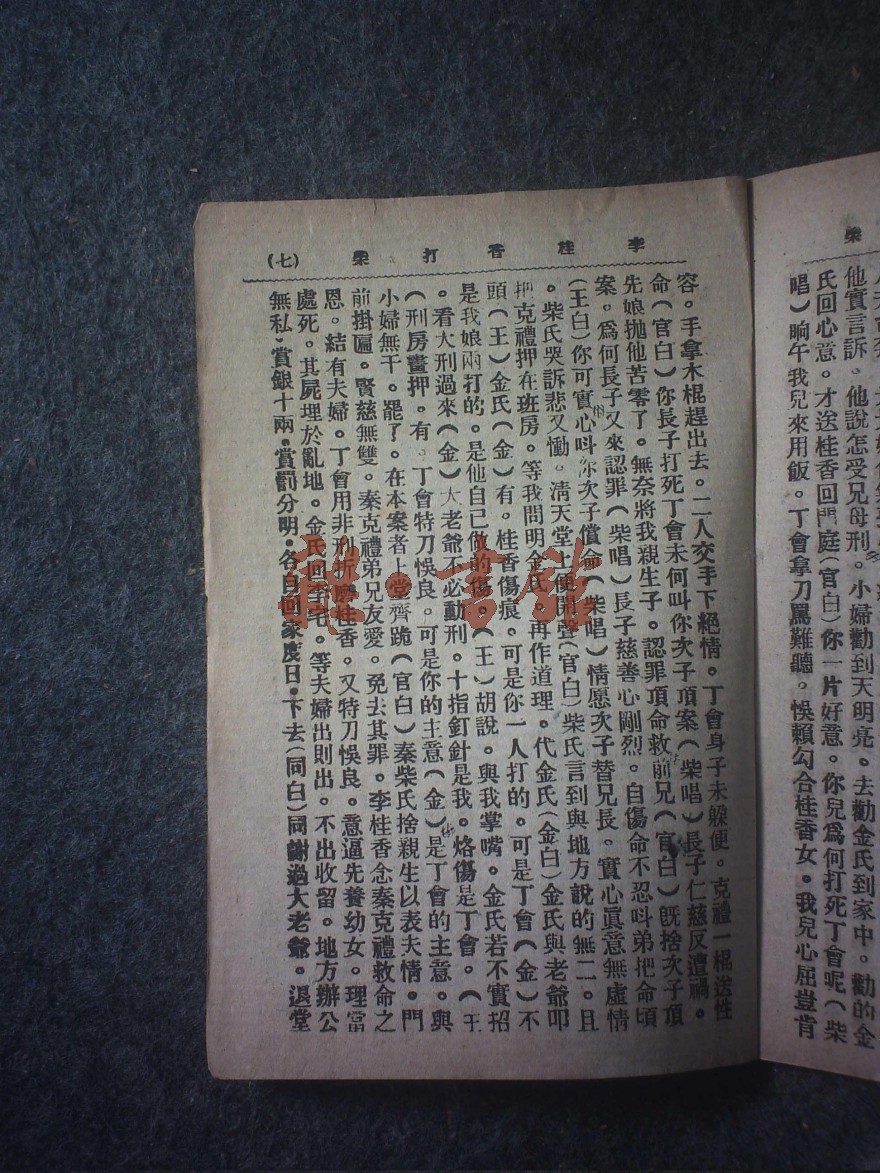 柴
他實言訴。他說怎受兄母刑。小婦勸到天明亮。去勸金氏到家中。勸的金
氏回心意。才送桂香回門庭(官白)你一片好意。你兒爲何打死丁會呢(柴
唱)晌午我兒來用飯。丁會拿刀罵難聽。悞賴勾合桂香女。我兒心屈豈肯
李桂香打柴 (七)
容。手拿木棍趕出去。二人交手下絕情。丁會身子未躲便。克禮一棍送性
命(官白)你長子打死丁會未何叫你次子頂案(柴唱)長子仁慈反遭禍。
先娘抛他苦零了。無奈將我親生子。認罪頂命救前兄(官白)旣捨次子頂
案。爲何長子又來認罪(柴唱)長子慈善心剛烈。自傷命不忍叫弟把命頃
(王白)你可實心叫你次子償命(柴唱)情愿次子替兄長。實心眞意無虛情
。柴氏哭訴悲又慟。淸天堂上便開聲(官白)柴氏言到與地方說的無二。且
把克禮押在班房。等我問明金氏。再作道理。代金氏(金白)金氏與老爺叩
頭(王)金氏(金)有。桂香傷痕。可是你一人打的。可是丁會(金)不
是我娘兩打的。是他自己做的傷。(王)胡說。與我掌嘴。金氏若不實招
。看大刑過來(金)大老爺不必動刑。十指釘針是我。烙傷是丁會。(王
(刑房畫押。有。丁會特刀悞良。可是你的主意(金)是丁會的主意。與
小婦無干。罷了。在本案者上堂齊跪(官白)秦柴氏捨親生以表夫情。門
前掛匾。賢慈無雙。秦克禮弟兄友愛。免去其罪。李桂香念秦克禮救命之
恩。結有夫婦。丁會用非刑折磨桂香。又特刀悞良。意逼先養幼女。理當
處死。其屍埋於亂地。金氏回李宅。等夫婦出則出。不出收留。地方辦公
無私。賞銀十兩。賞罰分明。各自回家度日。下去(同白)同謝過大老爺。退堂
書館